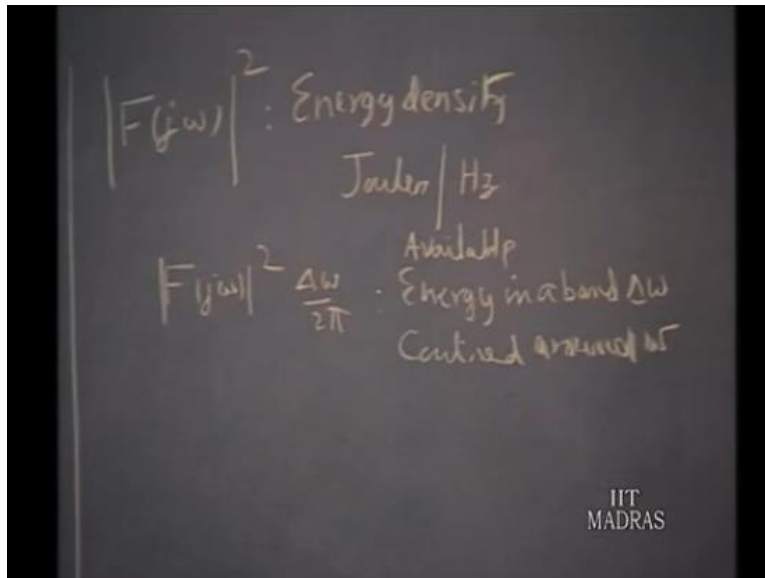 |F(jω)|² : Energy density
Joules / Hz
Available
|F(jω)|² Δω/2π : Energy in a band Δω
Centred around ω
IIT
MADRAS